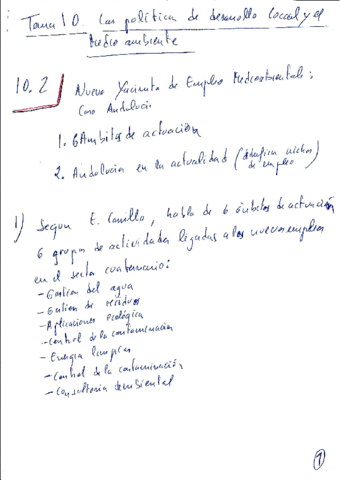 Tema 10. Las política de desarrollo local y el
Medio ambiente
10.2 Nuevo Yacimiento de Empleo Medioambiental:
Caso Andalucía
1. 6 Ambitos de actuación
2. Andalucía en la actualidad (identifica nichos
de empleo)
1) Segun E. Camillo, habla de 6 ámbitos de actuación
6 grupos de actividades ligadas a los nuevos empleos
en el sector cuaternario:
- Gestion del agua
- Gestion de residuos
- Aplicaciones ecológica
- Control de la contaminacion
- Energia limpias
- Control de la contaminación
- Consultoria ambiental
1